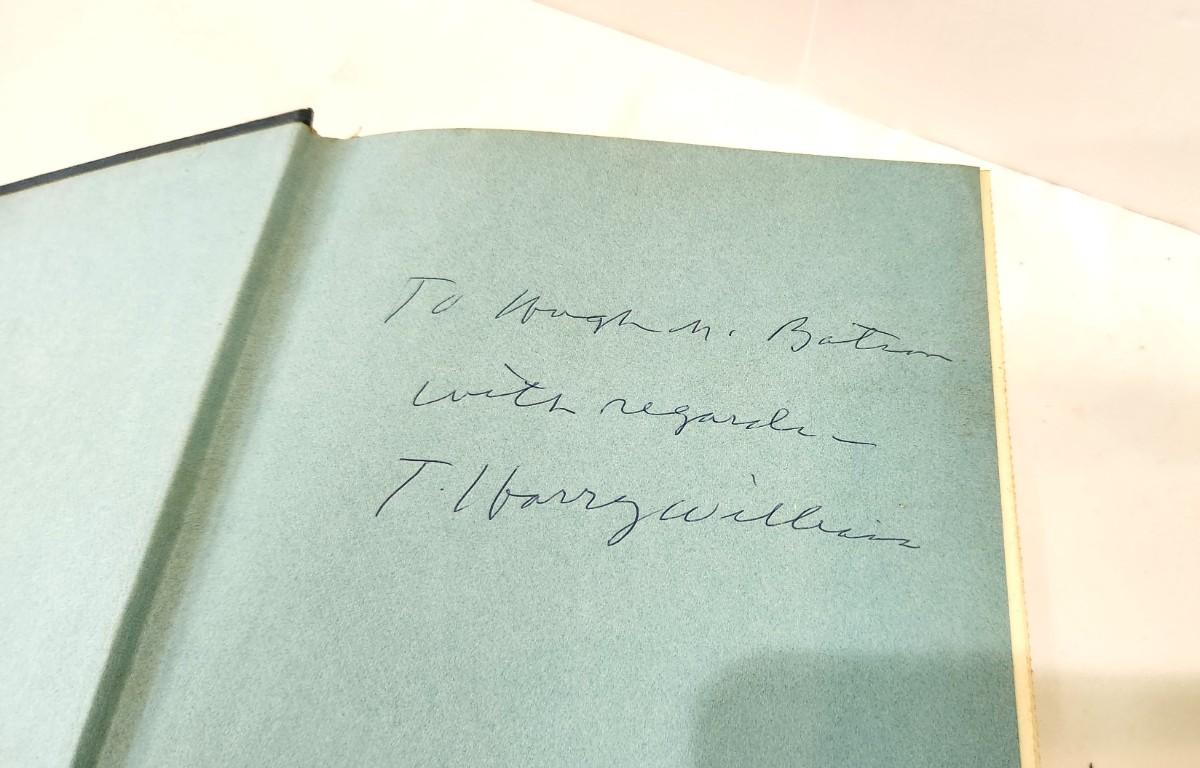 To Hugh M. Batson
with regards -
T. Harry Williams